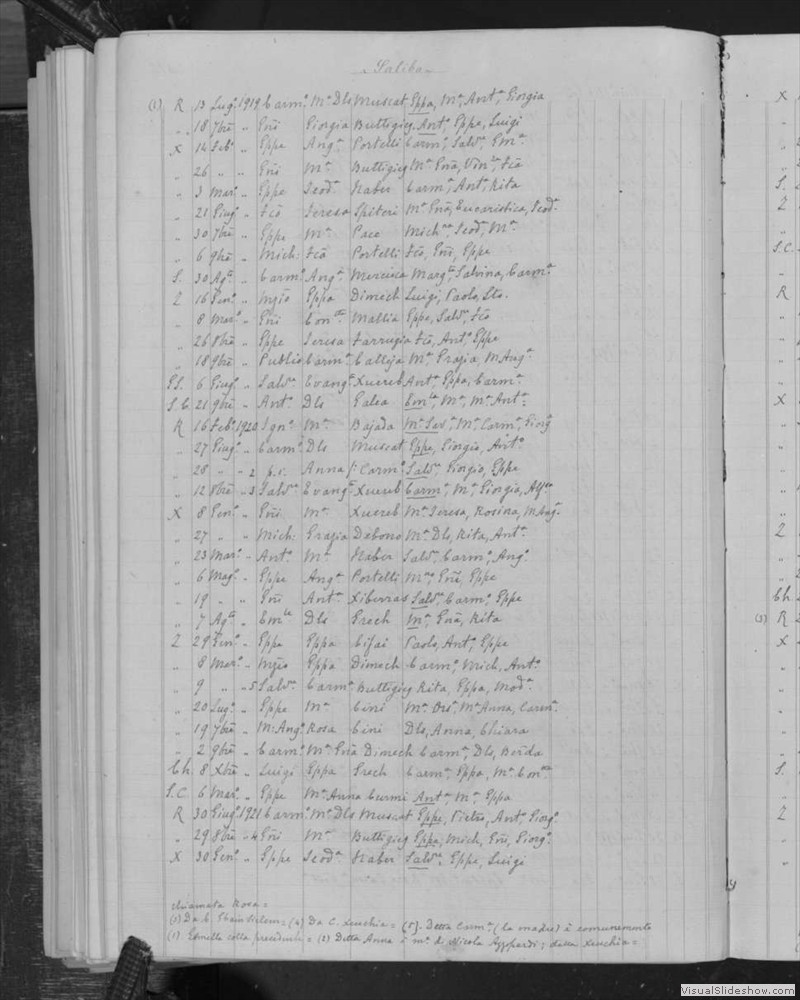 Saliba
(1) R 13 Lug.o 1919 Carm.o M.a Dls Muscat Eppa, M.a, Ant.a, Giorgia
„ 18 7bre „ Gni Giorgia Buttigieg Ant.a, Eppe, Luigi
X 14 Feb.o „ Eppe Ang.a Portelli Carm.a, Salv.a, Em.a
„ 26 „ „ Gni M.a Buttigieg M.a
„ 3 Mar.o „ Eppe Scod.a Naber Carm.a, Ant.a, Rita
„ 21 Giug.o „ Fco Teresa Spiteri M.a Gna, Eucaristica, Scod.a
„ 30 7bre „ Eppe M.a Pace Mich.a, Scod.a, M.a
„ 6 9bre „ Mich: Fca Portelli Fco, Gni, Eppe
S. 30 Ag.o „ Carm.o Ang.a Mercieca Marg.a Salvina, Carm.a
Z 16 Gen.o „ Eppa Dimech Luigi, Paolo
„ 8 Mar.o „ Gni Con.tta Mallia Eppe, Salv.e, Fco
„ 26 8bre „ Eppe Teresa Farrugia Fco, Ant.o, Eppe
„ 18 9bre „ Publio Carm.a Calleja M.a Grazia, M Ang.a
P.S. 6 Giug.o „ Salv.e Evang.a Xuereb Ant.a, Eppa, Carm.a
S.C. 21 9bre „ Ant.o Dls Galea M.a, M.a Ant.a
R 16 Feb.o 1920 Ign.o M.a Bajada M.a Sav.a, M.a Carm.a, Giorg.a
„ 27 Giug.o „ Carm.o Dls Muscat Eppe, Giorgio, Ant.o
„ 28 „ „ 2 p.i. Anna f: Carm.o Salv.e, Giorgio, Eppe
„ 12 8bre „ 3 Salv.e Evang.a Xuereb Carm.a, M.a, Giorgia
X 8 Gen.o „ Gni M.a Xuereb M.a Teresa, Rosina, M Ang.a
„ 27 „ „ Mich: Grazia Debono M.a Dls, Rita, Ant.a
„ 23 Mar.o „ Ant.o M.a Naber Salv.e, Carm.o, Ang.o
„ 6 Mag.o „ Eppe Ang.a Portelli Gni, Eppe
„ 19 „ „ Gni Ant.a Xiberras Salv.e, Carm.o, Eppe
„ 7 Ag.o „ Em.le Dls Grech M.a, Gna, Rita
Z 29 Gen.o „ Eppe Eppa Cifai Paolo, Ant.o, Eppe
„ 8 Mar.o „ Eppa Dimech Carm.o, Mich, Ant.o
„ 9 „ „ 5 Salv.e Carm.a Buttigieg Rita, Eppa
„ 20 Lug.o „ Eppe M.a Cini M.a Anna, Carm.a
„ 19 7bre „ M: Ang.o Rosa Cini Dls, Anna, Chiara
„ 2 9bre „ Carm.o M.a Gna Dimech Carm.a, Dls, Berda
Ch 8 Xbre „ Luigi Eppa Grech Carm.a, Eppa, M.a Con.tta
S.C 6 Mar.o „ Eppe M.a Anna Curmi Ant.a, M.a, Eppa
R 30 Giug.o 1921 Carm.o M.a Dls Muscat Eppe, Pietro, Ant.o, Giorg.o
„ 29 8bre „ 4 Gni M.a Buttigieg Eppe, Mich, Gni, Giorg.o
X 30 Gen.o „ Eppe Scod.a Naber Salv.e, Eppe, Luigi
chiamata Rosa =
(3) Da C. = (4) Da C. Xeuchia = (5). Detta Carm.a (la madre) è comunemente
(1). Gemella colla precedente = (2) Detta Anna è m.a di Nicola ; dalla Xeuchia =
X
S.
Z
S.C.
R
X
Z
Ch
(3) R
X
S.
Z
VisualSlideshow.com